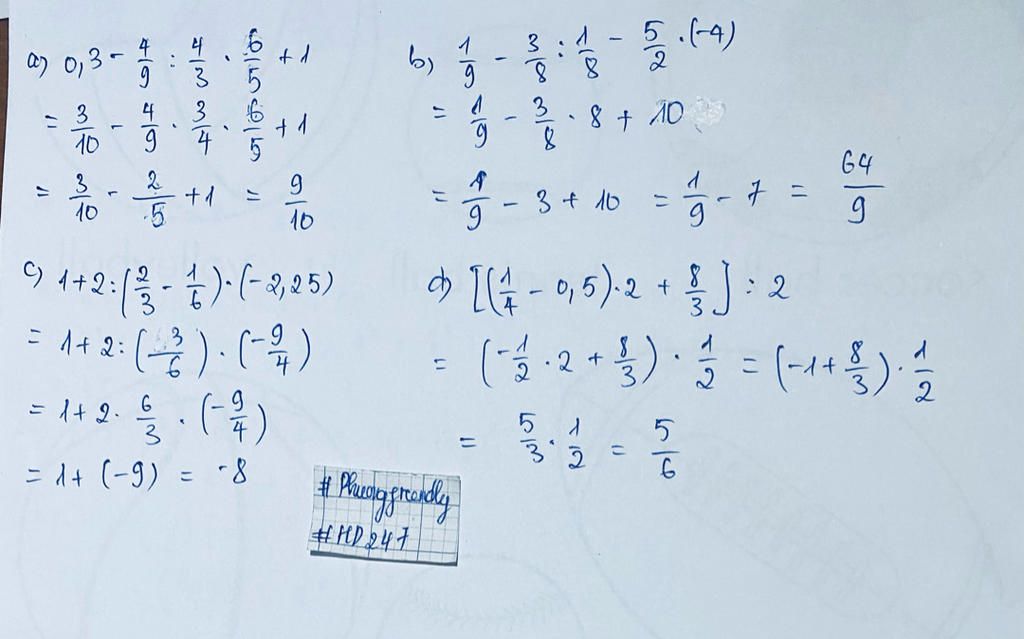 a) 0,3 - 4/9 : 4/3 . 6/5 + 1
= 3/10 - 4/9 . 3/4 . 6/5 + 1
= 3/10 - 2/5 + 1 = 9/10
b) 1/9 - 3/8 : 1/8 - 5/2 . (-4)
= 1/9 - 3/8 . 8 + 10
= 1/9 - 3 + 10 = 1/9 - 7 = 64/9
c) 1+2:(2/3 - 1/6).(-2,25)
= 1+2:(3/6).(-9/4)
= 1+2. 6/3 . (-9/4)
= 1+ (-9) = -8
d) [(1/4 - 0,5).2 + 8/3] : 2
= (-1/2 . 2 + 8/3) . 1/2 = (-1+8/3).1/2
= 5/3 . 1/2 = 5/6
#HD247